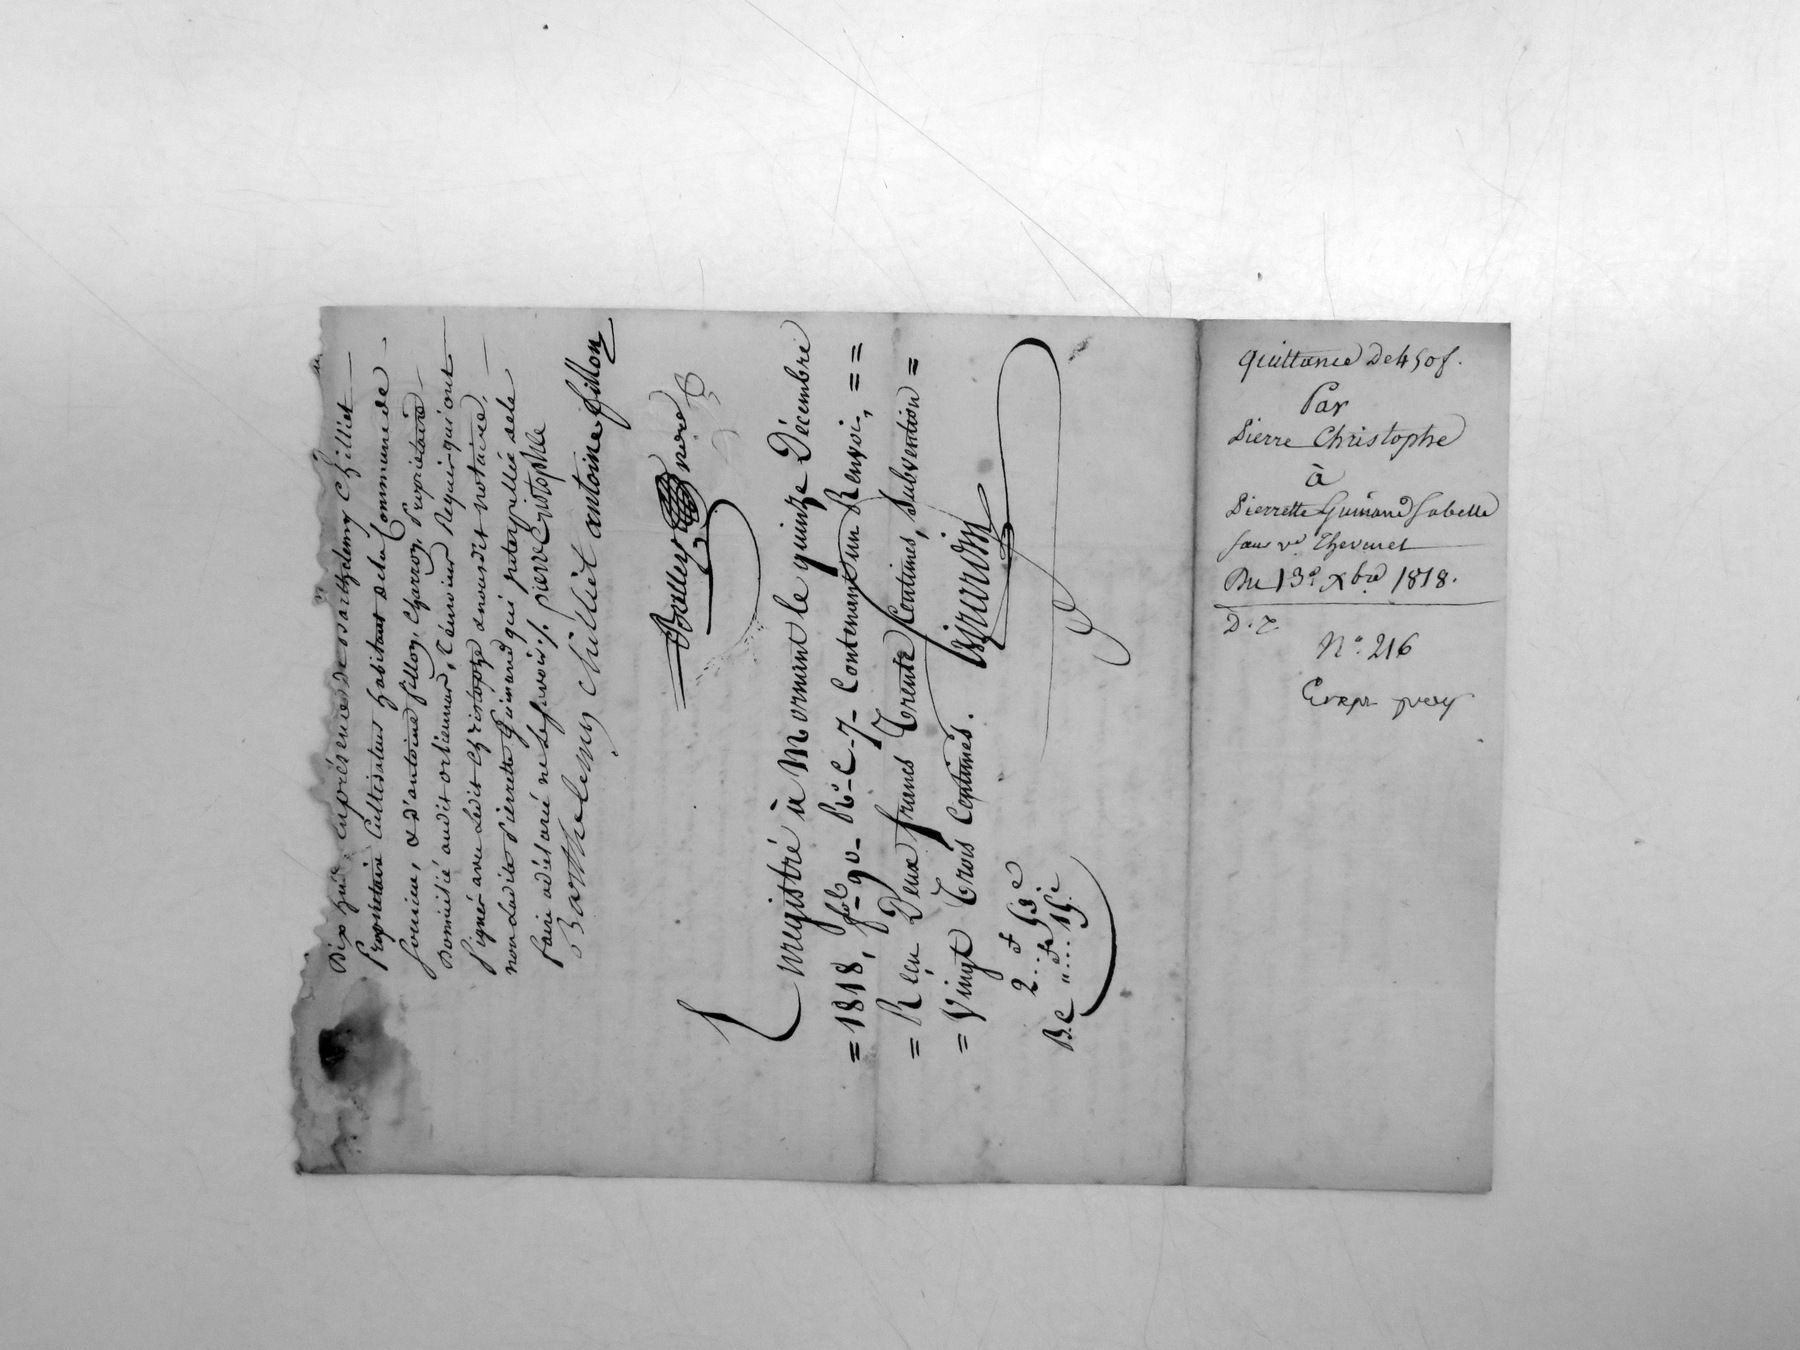 Dix huit, en présence de Barthelemy Chilliet
Propriétaire Cultivateur habitant de la Commune de
et d'antoine fillon, Charron, Propriétaire
Domicilié audit orliennard, Témoins Requis qui ont
signé avec Ledit Christophe et nousdit notaire,
non Ladite Pierrette Guinand qui interpellée de le
faire a déclaré ne le savoir ./. pierre Cristophle
Barthelemy Chilliet antoine fillon
nore
Enregistré à Mornant le quinze Décembre
= 1818, fol. 90 R.º C. 7. Contenant un Renvoi, = =
= Reçu Deux francs Trente Centimes, Subvention =
= Vingt Trois Centimes.
Quittance De 450 f.
Par
Pierre Christophe
à
Pierrette Guinand
ve Thevenet
Du 13e Xbre 1818.
D. T.
Nº 216